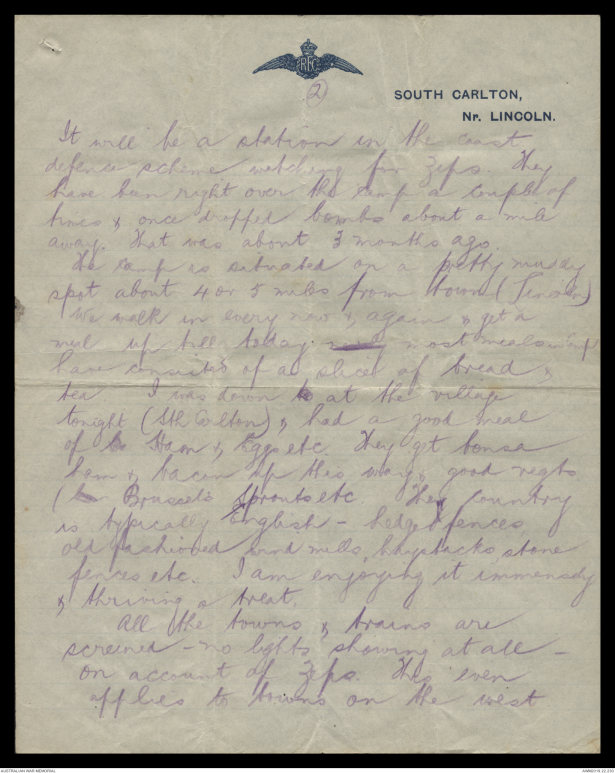 RFC
(2)
SOUTH CARLTON,
Nr. LINCOLN.
It will be a station in the coast
defence scheme watching for Zeps. They
have been right over the camp a couple of
times & once dropped bombs about a mile
away. That was about 3 months ago.
The camp is situated on a pretty muddy
spot about 4 or 5 miles from town (Lincoln)
We walk in every now & again & get a
meal up till today most meals in camp
have consisted of a slice of bread &
tea. I was down at the village
tonight (Sth Carlton) & had a good meal
of Ham & Eggs etc. They get bonsa
ham & bacon up this way & good vegts
( Brussels Sprouts etc The country
is typically English - hedge fences,
old fashioned wind mills, haystacks, stone
fences etc. I am enjoying it immensely
& thriving a treat.
All the towns & trains are
screened - no lights showing at all -
on account of Zeps. This even
applies to towns on the west
AUSTRALIAN WAR MEMORIAL